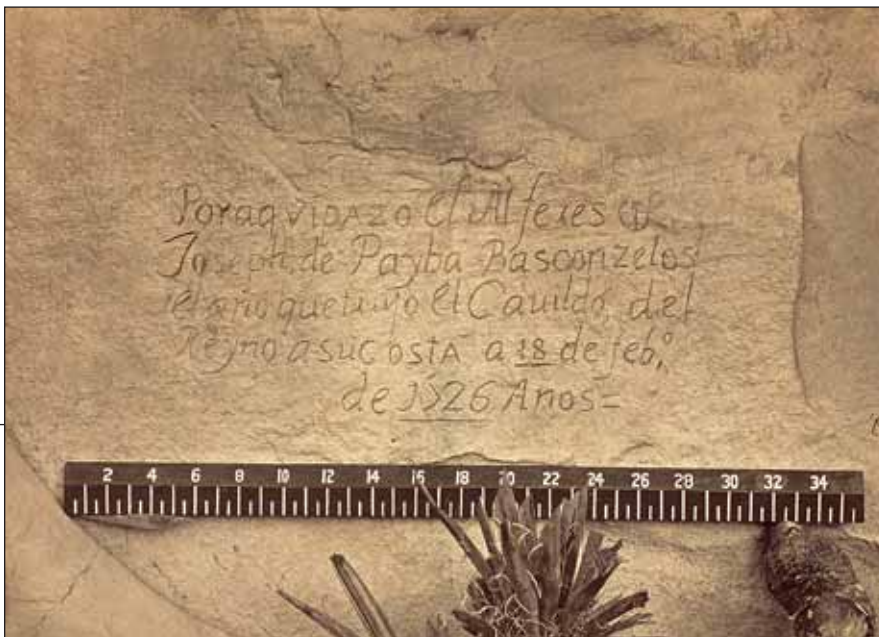 Por aqvi pazo el Alferes Dn
Joseph de Payba Basconzelos
el año que tujo el Cauildo, del
Reyno a su costa a 18 de feb.º
de 1526 Años=
2 4 6 8 10 12 14 16 18 20 22 24 26 28 30 32 34